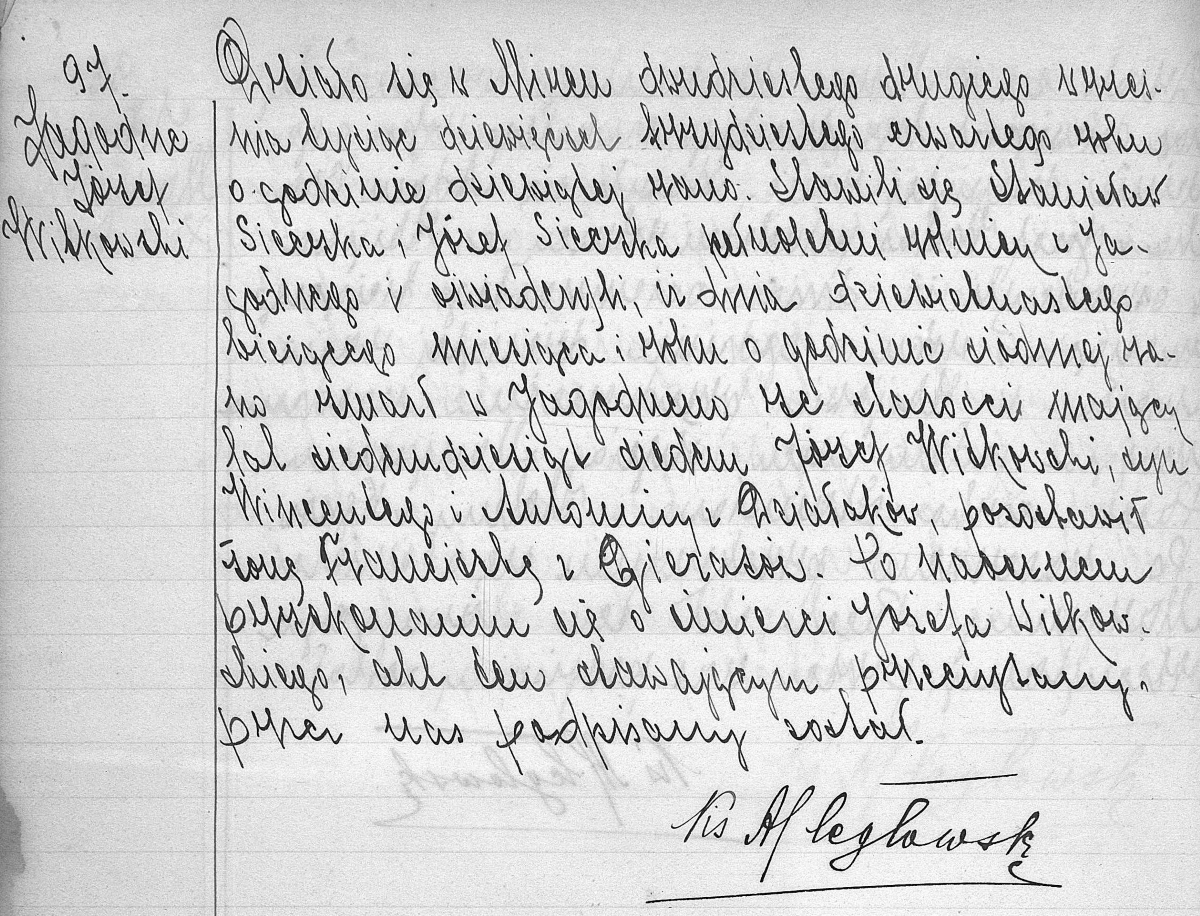 97.
Jagodne
Józef
Witkowski
Działo się w Mircu dwudziestego drugiego wrześ-
nia tysiąc dziewięćset trzydziestego czwartego roku
o godzinie dziewiątej rano. Stawili się Stanisław
Sieczka i Józef Sieczka pełnoletni rolnicy z Ja-
godnego i oświadczyli, iż dnia dziewiętnastego
bieżącego miesiąca i roku o godzinie siódmej ra-
no zmarł w Jagodnem ze starości mający
lat siedemdziesiąt siedem Józef Witkowski, syn
Wincentego i Antoniny z Działaków, pozostawił
żonę Franciszkę z Gierasów. Po naocznem
przekonaniu się o śmierci Józefa Witkow-
skiego, akt ten stawającym przeczytany,
przez nas podpisany został.
Ks